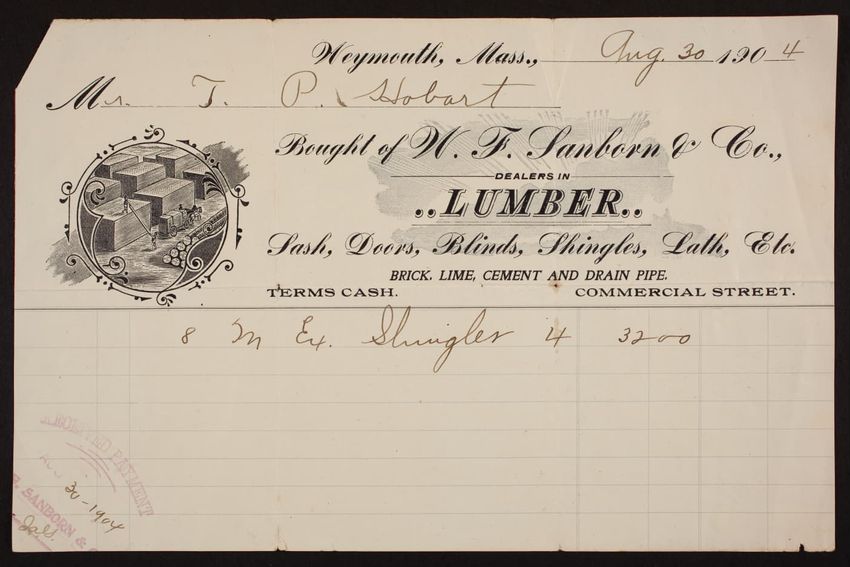 Weymouth, Mass., Aug. 30 1904
Mr. T. P. Hobart
Bought of W. F. Sanborn & Co.,
DEALERS IN
..LUMBER..
Sash, Doors, Blinds, Shingles, Lath, Etc.
BRICK, LIME, CEMENT AND DRAIN PIPE.
TERMS CASH. COMMERCIAL STREET.
8 M Ex. Shingles 4 3200
PAYMENT
30-1904
SANBORN &